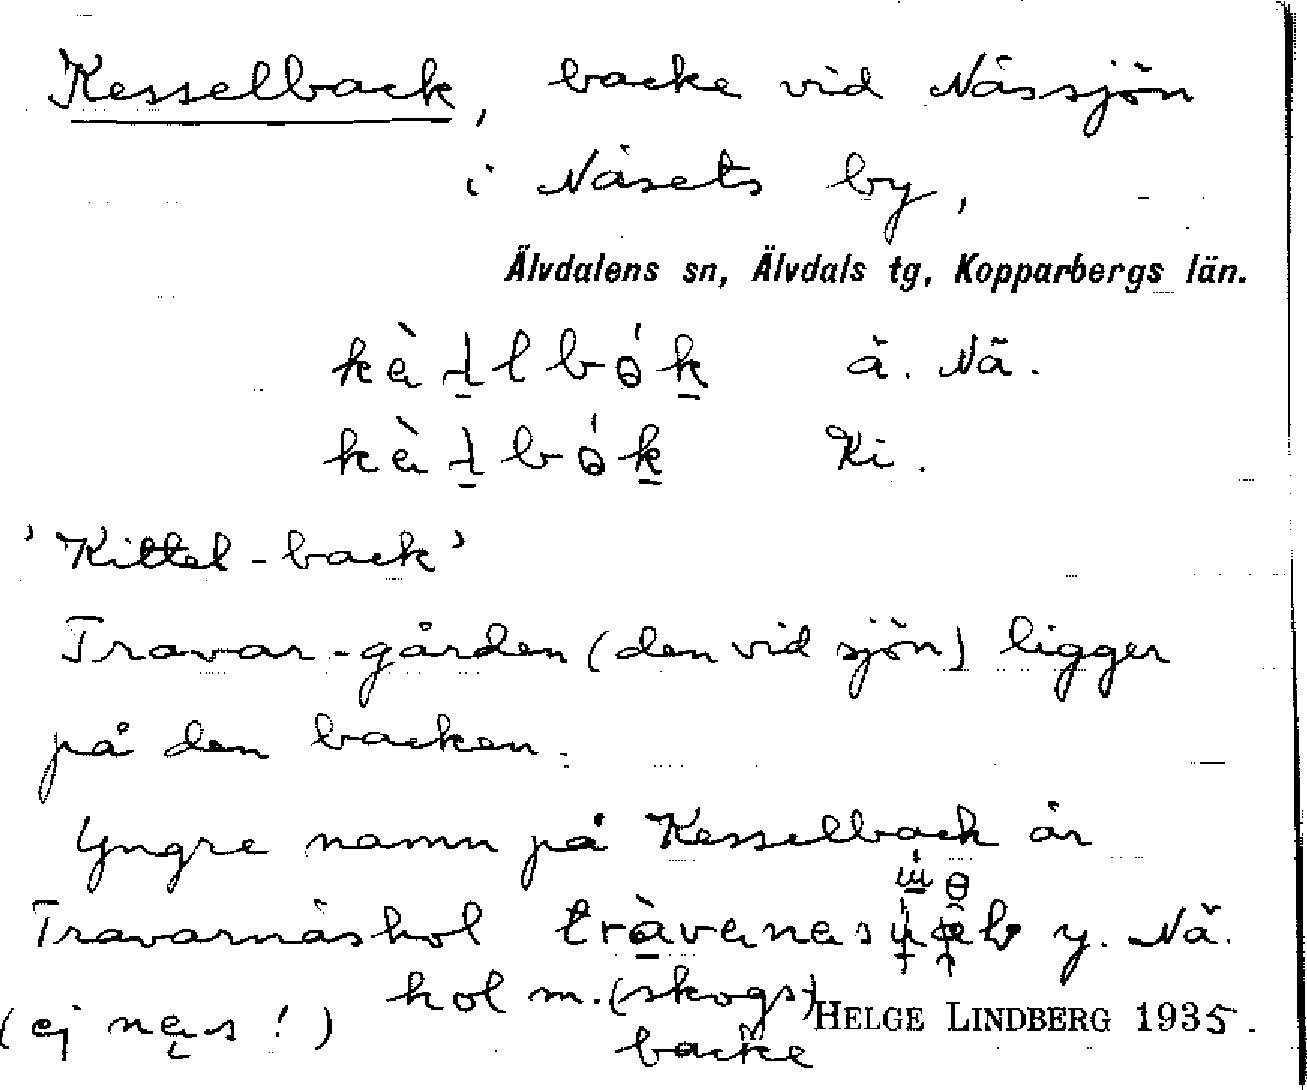 Kesselback, backe vid Nässjön
i Näsets by,
Älvdalens sn, Älvdals tg, Kopparbergs län.
ä. Nä.
Ki.
'Kittel-back'
Travar-gården (den vid sjön) ligger
på den backen.
Yngre namn på Kesselback är
Travarnäshol y. Nä.
hol m. (skogs)
backe
(ej !)
HELGE LINDBERG 1935.